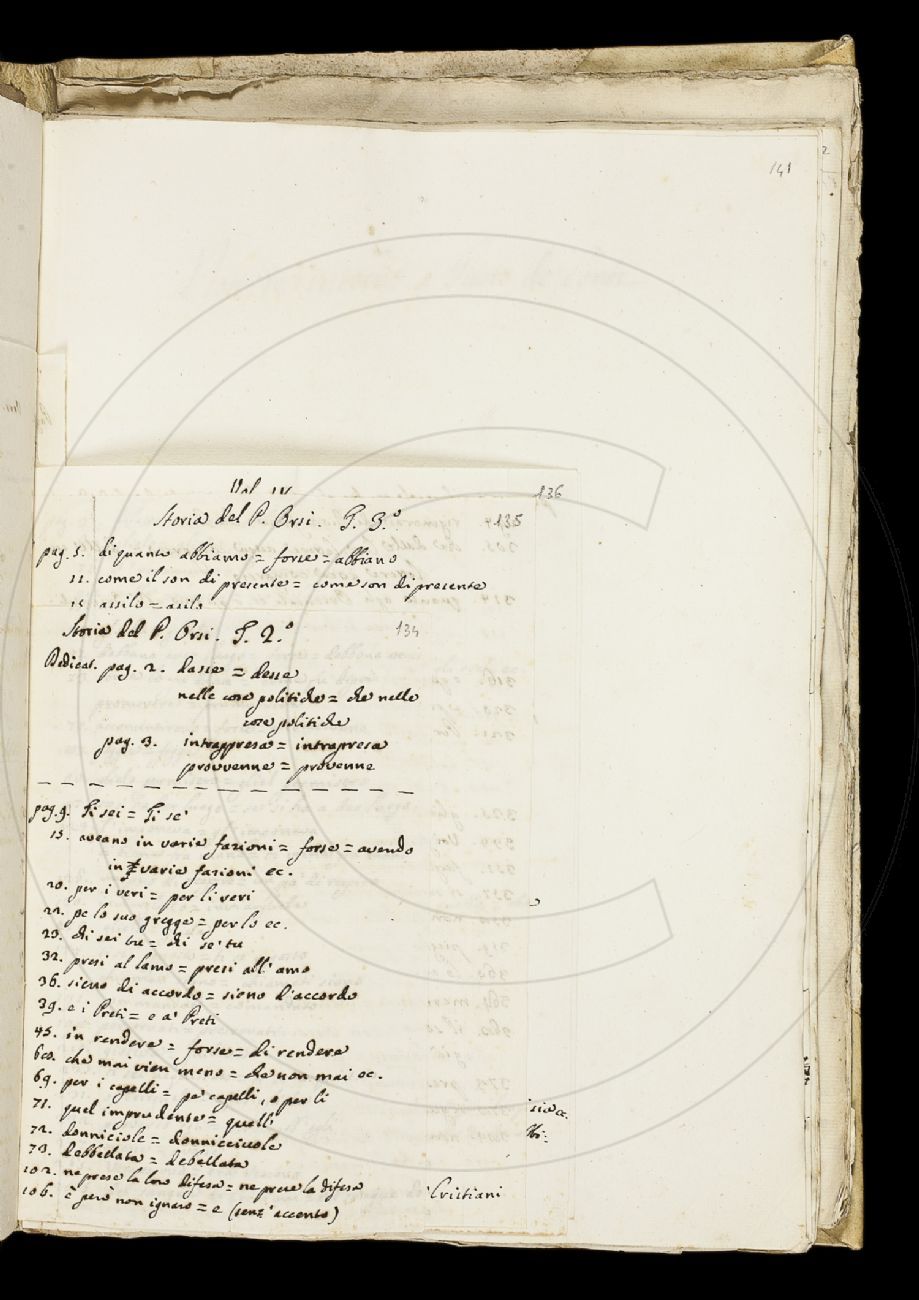 141
136
Storia del P. Orsi. T. 3.º
135
pag. 5. di quanto abbiamo = forse = abbiano
11. come il son di presente = come son di presente
15. assilo = asilo
Storia del P. Orsi. T. 2.º
134
Dedicat. pag. 2. dasse = desse
nelle cose politiche = che nelle
cose politiche
pag. 3. intrappresa = intrapresa
provvenne = provenne
pag. 9. Ti sei = Ti se'
15. aveano in varie fazioni = forse = avendo
in varie fazioni ec.
20. per i veri = per li veri
22. pe lo suo gregge = per lo ec.
23. di sei tu = di se' tu
32. presi al lamo = presi all' amo
36. sieno di accordo = sieno d'accordo
39. e i Preti = e a' Preti
45. in rendere = forse = di rendere
60. che mai vien meno = che non mai ec.
69. per i capelli = pe' capelli, o per li
71. quel imprudente = quelli
72. donniciole = donnicciuole
73. debbellata = debellata
102. ne prese la loro difesa = ne prese la difesa
106. è però non ignaro = e (senz' accento)
Cristiani